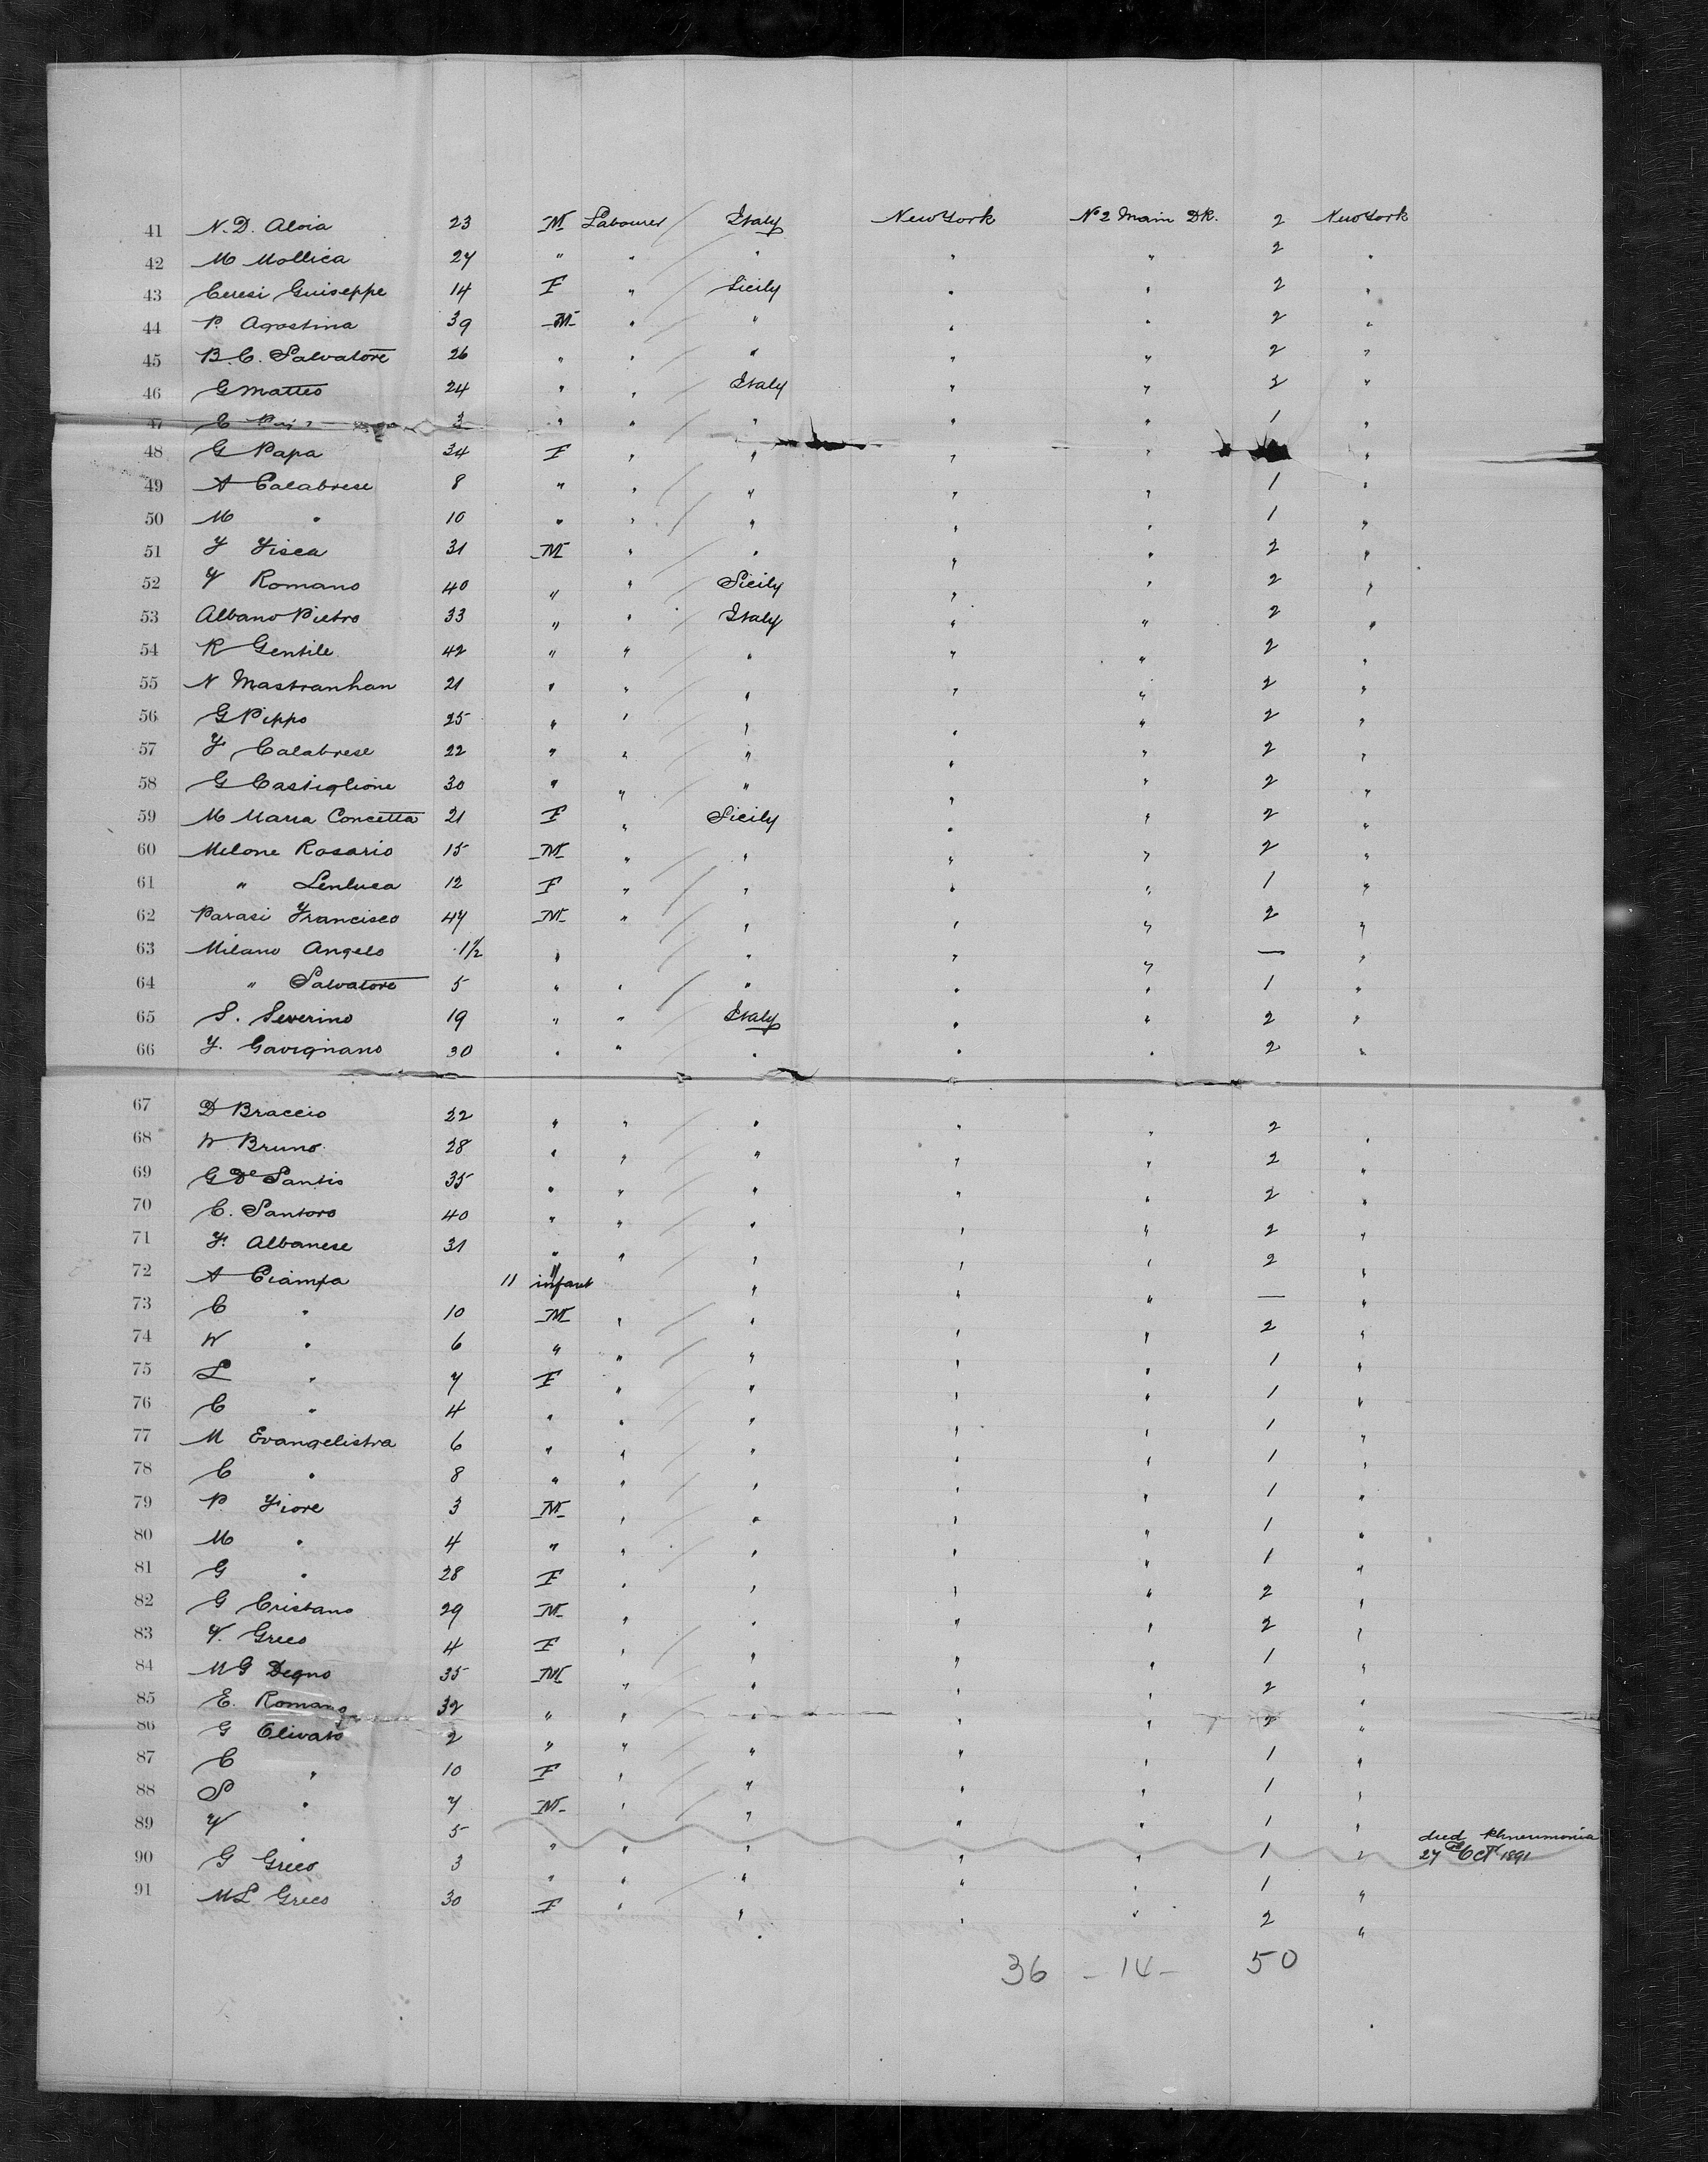 41 N. D. Aloia 23 M Labourer / Italy New York No 2 Main DK. 2 New York
42 M Mollica 27 " " / " " " 2 "
43 Ceresi Guiseppe 14 F " / Sicily " " 2 "
44 P. Agostina 39 M " / " " " 2 "
45 B. C. Salvatore 26 " " / " " " 2 "
46 G Matteo 24 " " / Italy " " 2 "
47 C 3 " " / " " " 1 "
48 G Papa 34 F " / " " " "
49 A Calabrese 8 " " / " " " 1 "
50 M " 10 " " / " " " 1 "
51 F Fisca 31 M " / " " " 2 "
52 V Romano 40 " " / Sicily " " 2 "
53 Albano Pietro 33 " " / Italy " " 2 "
54 R Gentile 42 " " / " " " 2 "
55 N 21 " " / " " " 2 "
56 G Pippo 25 " " / " " " 2 "
57 F Calabrese 22 " " / " " " 2 "
58 G Castiglione 30 " " / " " " 2 "
59 M Maria Concetta 21 F " / Sicily " " 2 "
60 Melone Rosario 15 M " / " " " 2 "
61 " 12 F " / " " " 1 "
62 Parasi Francisco 47 M " / " " " 2 "
63 Milano Angelo 1½ " / " " " — "
64 " Salvatore 5 " " / " " " 1 "
65 S. Severino 19 " " / Italy " " 2 "
66 F. Gavignano 30 " " / " " " 2 "
67 D Braccio 22 " " / " " " 2 "
68 V Bruno 28 " " / " " " 2 "
69 G De Santis 35 " " / " " " 2 "
70 C. Santoro 40 " " / " " " 2 "
71 F. Albanese 31 " " / " " " 2 "
72 A Ciampa 11 " infant " " " — "
73 C " 10 M " / " " " 2 "
74 N " 6 " " / " " " 1 "
75 L " 7 F " / " " " 1 "
76 C " 4 " " / " " " 1 "
77 M Evangelistra 6 " " / " " " 1 "
78 C " 8 " " / " " " 1 "
79 P. Fiore 3 M " / " " " 1 "
80 M " 4 " " / " " " 1 "
81 G " 28 F " / " " " 2 "
82 G Cristano 29 M " / " " " 2 "
83 V. Greco 4 F " / " " " 1 "
84 M G Degno 35 M " / " " " 2 "
85 E. Romano 32 " " / " " " 2 "
86 G Olivato 2 " " / " " " 1 "
87 C " 10 F " / " " " 1 "
88 S " 7 M " / " " " 1 "
89 V " 5 " " / " " " 1 " died Phneumonia 27 Oct 1891
90 G Greco 3 " " / " " " 1 "
91 M L Greco 30 F " / " " " 2 "
36 - 14 - 50